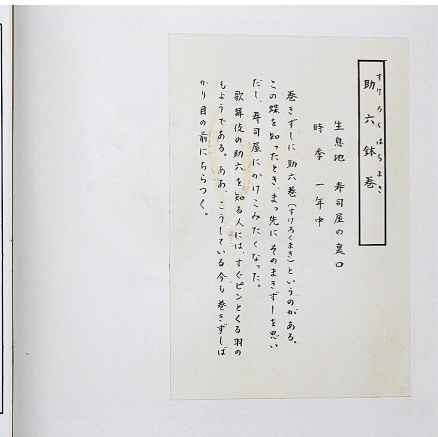 助六鉢巻
すけろくはちまき
生息地　寿司屋の裏口
時季　一年中
巻きずしに助六巻(すけろくまき)というのがある。
この蝶を知ったとき、まっ先にそのまきずしを思い
だし、寿司屋にかけこみたくなった。
歌舞伎の助六を知る人には、すぐピンとくる羽の
もようである。ああ、こうしている今も巻きずしば
かり目の前にちらつく。